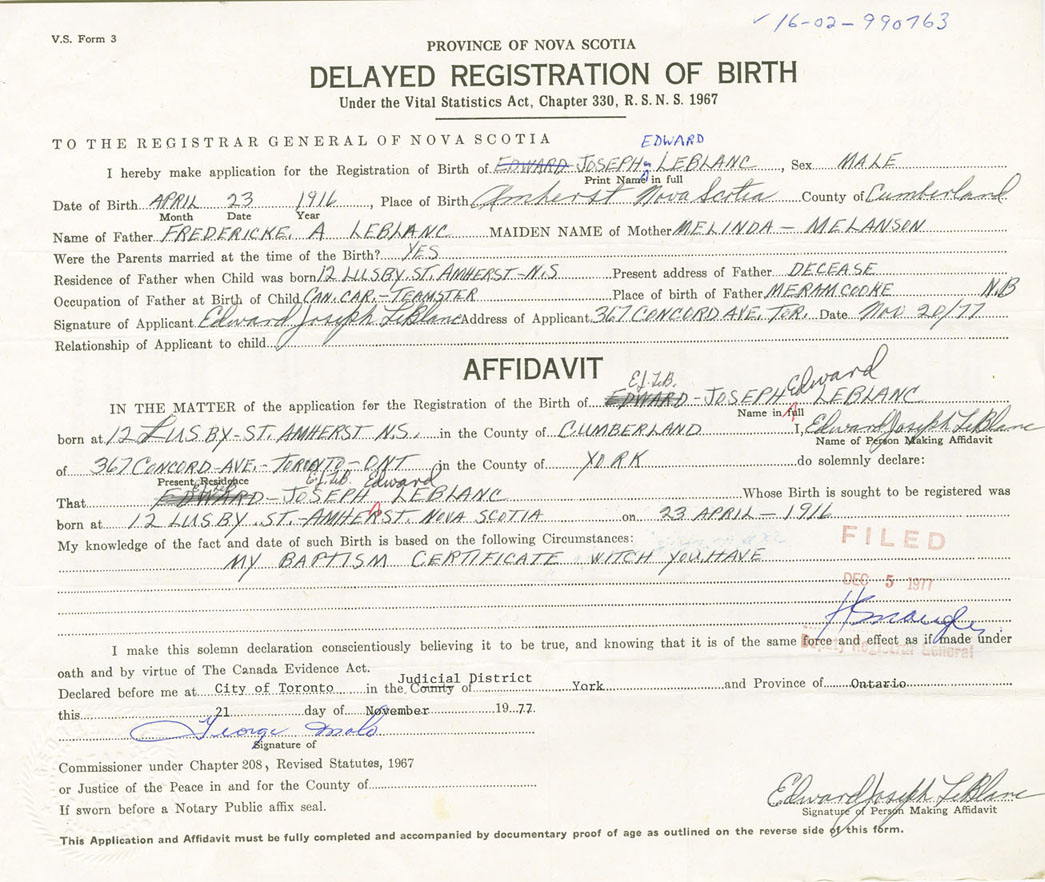 16-02-990763
V.S. Form 3
PROVINCE OF NOVA SCOTIA
DELAYED REGISTRATION OF BIRTH
Under the Vital Statistics Act, Chapter 330, R. S. N. S. 1967
TO THE REGISTRAR GENERAL OF NOVA SCOTIA
EDWARD
I hereby make application for the Registration of Birth of EDWARD JOSEPH LEBLANC, Sex MALE
Print Name in full
Date of Birth APRIL 23 1916, Place of Birth Amherst Nova Scotia County of Cumberland
Month Date Year
Name of Father FREDERICKE. A LEBLANC MAIDEN NAME of Mother MELINDA - MELANSON
Were the Parents married at the time of the Birth? YES
Residence of Father when Child was born 12 LUSBY. ST. AMHERST-N.S Present address of Father DECEASE
Occupation of Father at Birth of Child CAN. CAR. - TEAMSTER Place of birth of Father MERAMCOOKE N.B
Signature of Applicant Edward Joseph LeBlanc Address of Applicant 367 CONCORD AVE. TOR. Date Nov. 20/77
Relationship of Applicant to child
AFFIDAVIT
E.J.L.B. Edward
IN THE MATTER of the application for the Registration of the Birth of EDWARD - JOSEPH LEBLANC
Name in full
born at 12 LUSBY-ST. AMHERST N.S. in the County of CUMBERLAND I, Edward Joseph LeBlanc
Name of Person Making Affidavit
of 367 CONCORD-AVE.-TORONTO-ONT in the County of YORK do solemnly declare:
Present Residence
E.J.L.B. Edward
That EDWARD - JOSEPH LEBLANC Whose Birth is sought to be registered was
born at 12 LUSBY. ST.-AMHERST. NOVA SCOTIA on 23 APRIL - 1916
My knowledge of the fact and date of such Birth is based on the following Circumstances:
MY BAPTISM CERTIFICATE WITCH YOU, HAVE
FILED
DEC 5 1977
I make this solemn declaration conscientiously believing it to be true, and knowing that it is of the same force and effect as if made under
Deputy Registrar General
oath and by virtue of The Canada Evidence Act.
Judicial District
Declared before me at City of Toronto in the County of York and Province of Ontario
this 21 day of November 19 77.
George
Signature of
Commissioner under Chapter 208, Revised Statutes, 1967
or Justice of the Peace in and for the County of
If sworn before a Notary Public affix seal.
Edward Joseph LeBlanc
Signature of Person Making Affidavit
This Application and Affidavit must be fully completed and accompanied by documentary proof of age as outlined on the reverse side of this form.